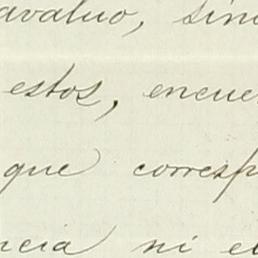 avaluo, sin
estos, encue
que corresp
ncia ni e